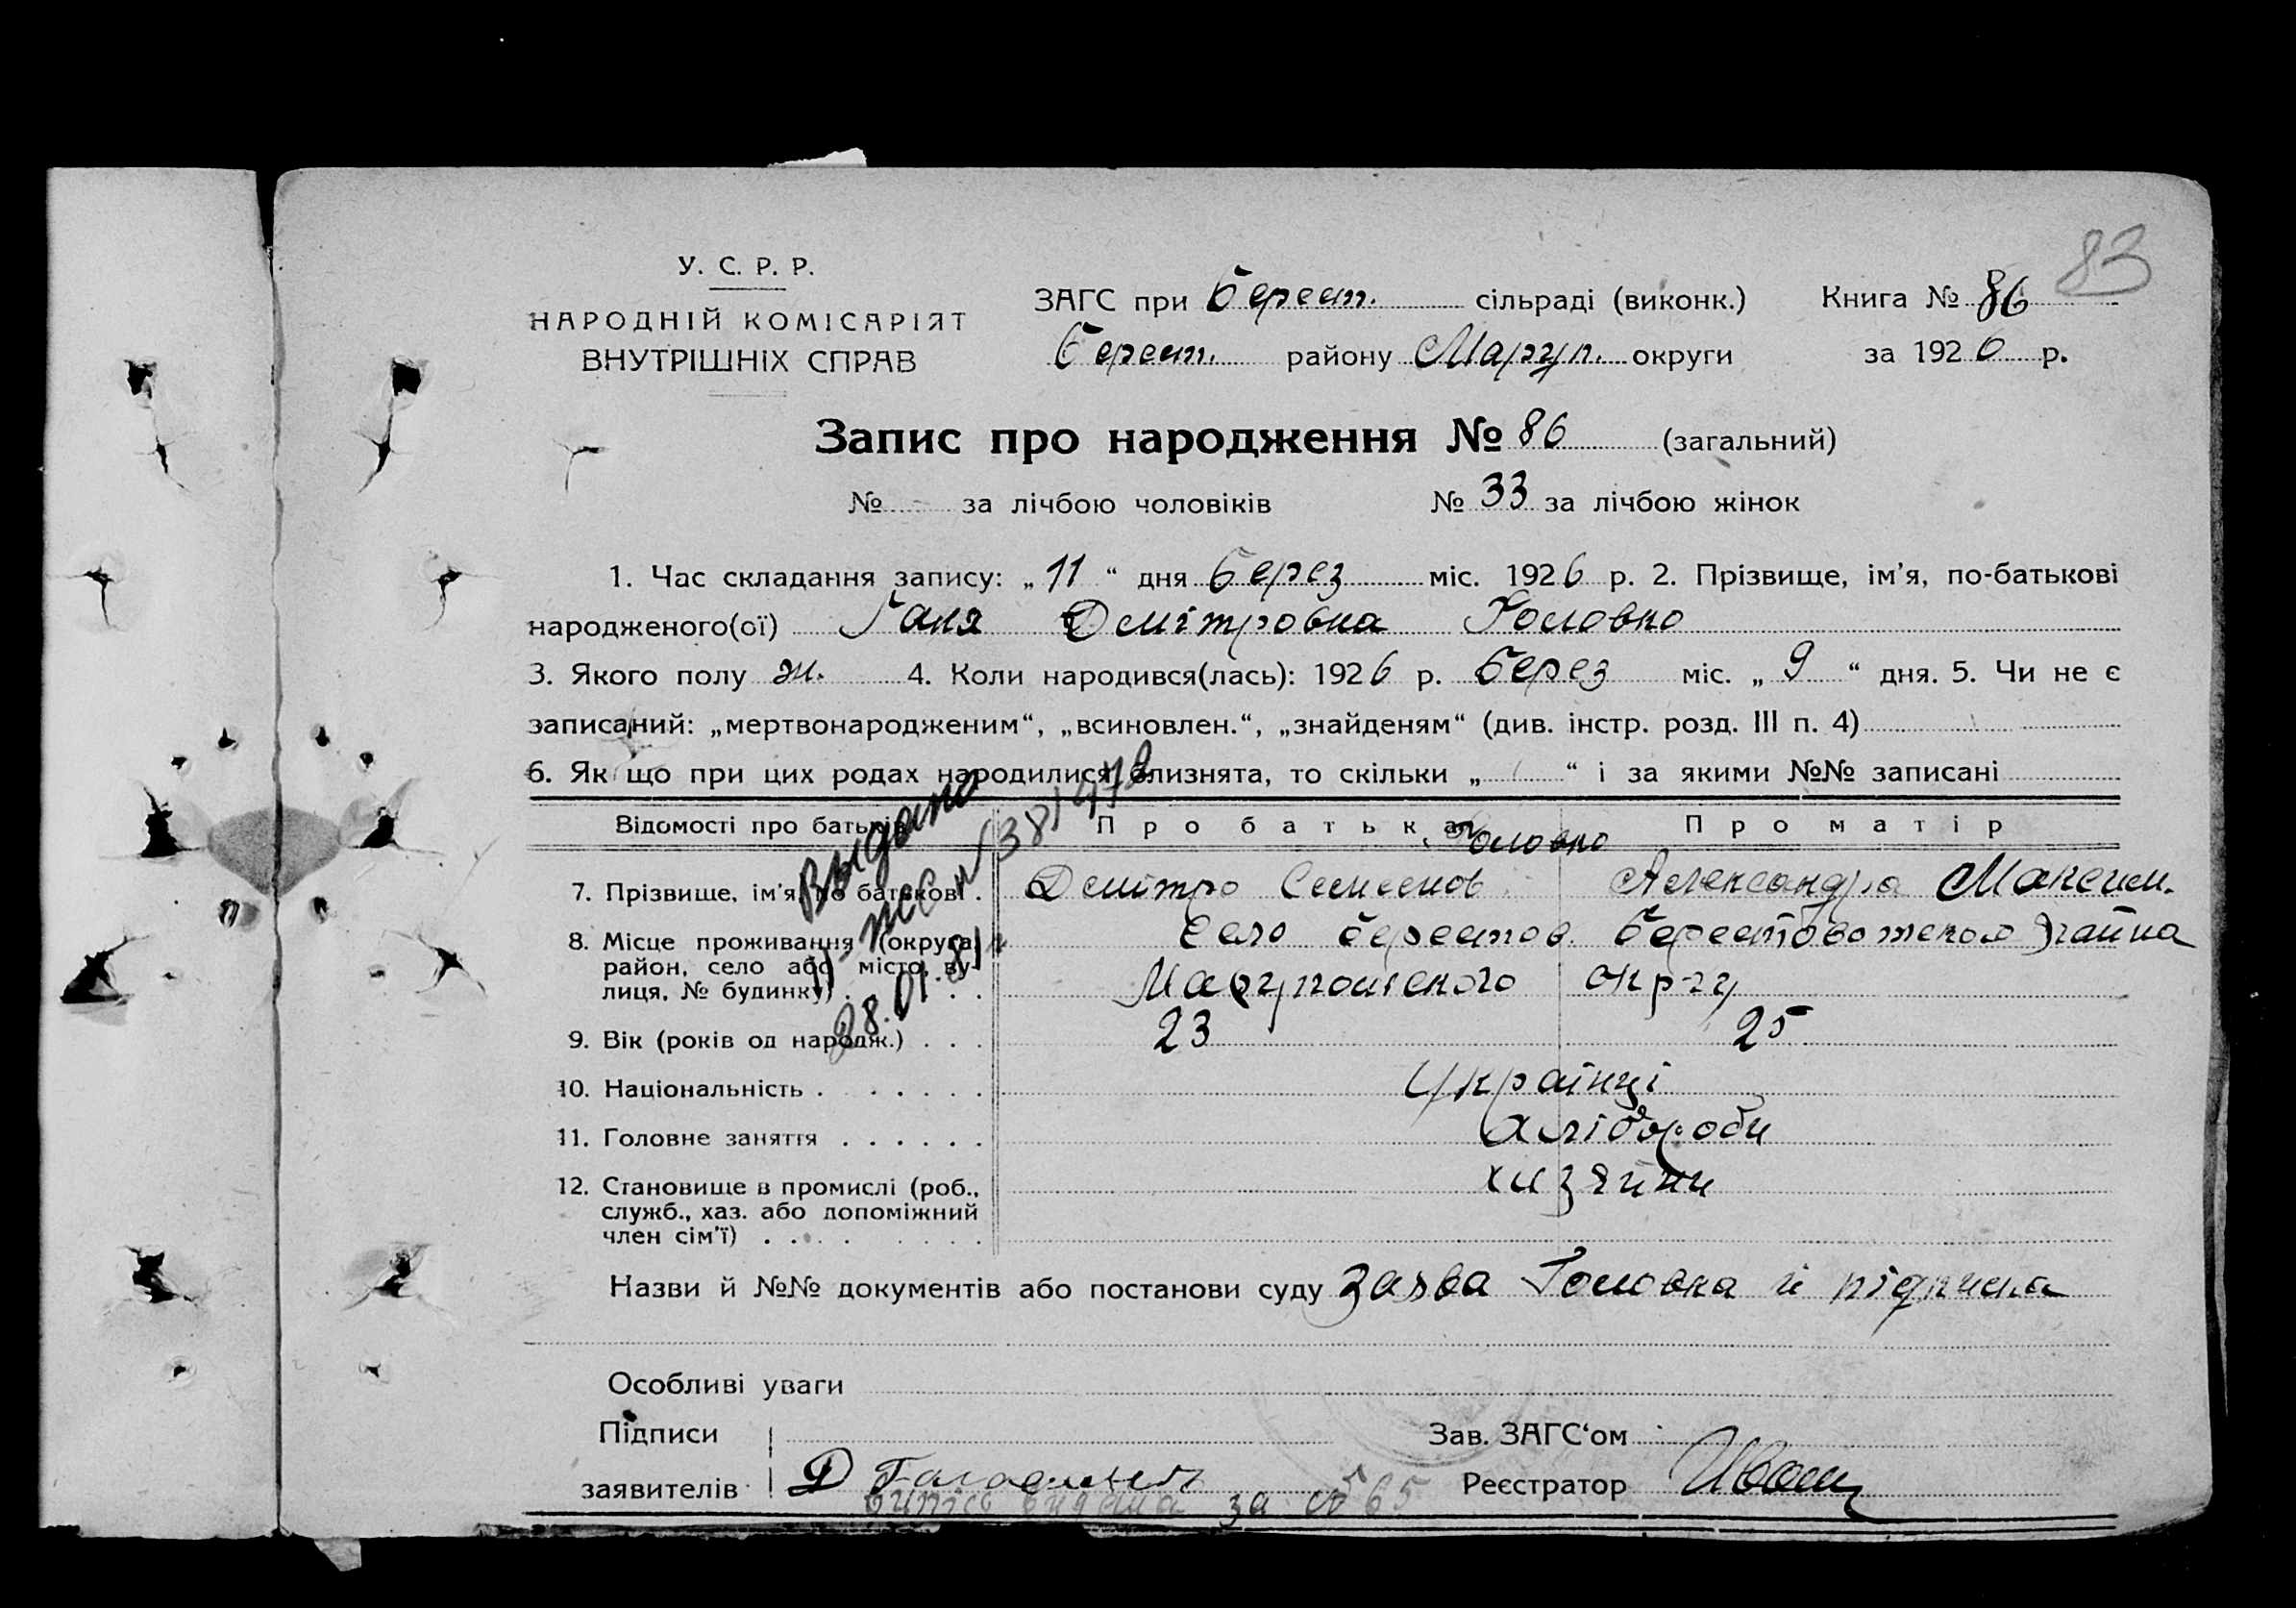 83
У. С. Р. Р.
НАРОДНІЙ КОМІСАРІЯТ
ВНУТРІШНІХ СПРАВ
ЗАГС при Берест. сільраді (виконк.) Книга № 86
Берест. району Маруп. округи за 1926 р.
Запис про народження № 86 (загальний)
№ - за лічбою чоловіків № 33 за лічбою жінок
1. Час складання запису: „11“ дня Берез міс. 1926 р. 2. Прізвище, ім'я, по-батькові
народженого(ої) Галя Дмітровна Головко
3. Якого полу ж. 4. Коли народився(лась): 1926 р. Берез міс. „9“ дня. 5. Чи не є
записаний: „мертвонародженим“, „всиновлен.“, „знайденям“ (див. інстр. розд. III п. 4)
6. Як що при цих родах народилися близнята, то скільки „ “ і за якими №№ записані
Відомості про батьків Про батька Про матір
Головко
7. Прізвище, ім'я, по батькові . Дмітро Семенов Александра Максим.
8. Місце проживання (округа, район, село або місто, вулиця, № будинку) . . . Село берестов. Берестовського района
Маріупольского окргу
9. Вік (років од народж.) . . . 23 25
10. Національність . . . . . . Українці
11. Головне заняття . . . . . . хлібороби
12. Становище в промислі (роб., хизяйни
служб., хаз. або допоміжний
член сім'ї) . . . . . . . .
Выдана
28.01.81г
Назви й №№ документів або постанови суду заява Головка й підписка
Особливі уваги
Підписи Зав. ЗАГС‘ом
заявителів Д Реєстратор
видана за № 65